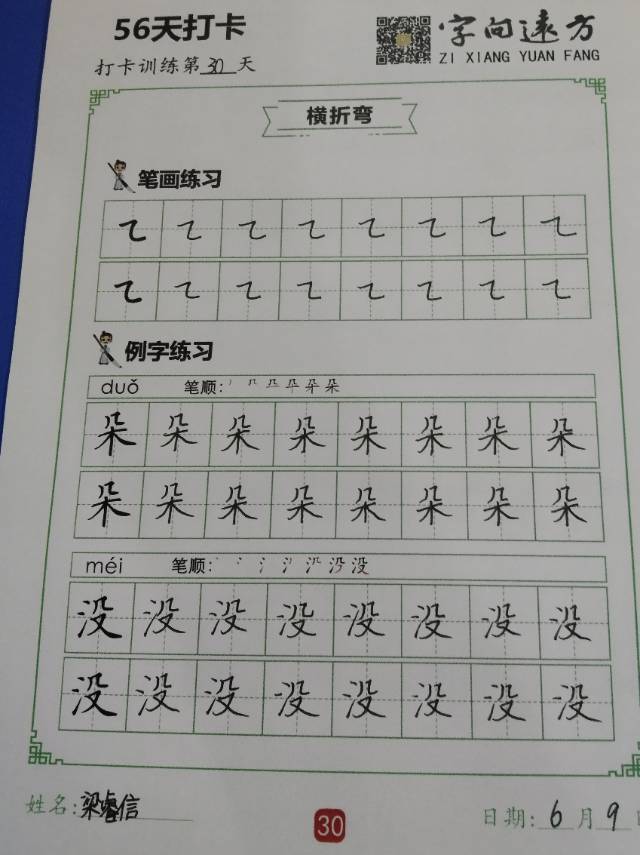 56天打卡
字向远方
ZI XIANG YUAN FANG
打卡训练第30天
横折弯
笔画练习
例字练习
duǒ 笔顺:
朵朵朵朵朵朵朵朵
朵朵朵朵朵朵朵朵
méi 笔顺:
没没没没没没没没
没没没没没没没没
姓名:梁睿信
30
日期:6月9日